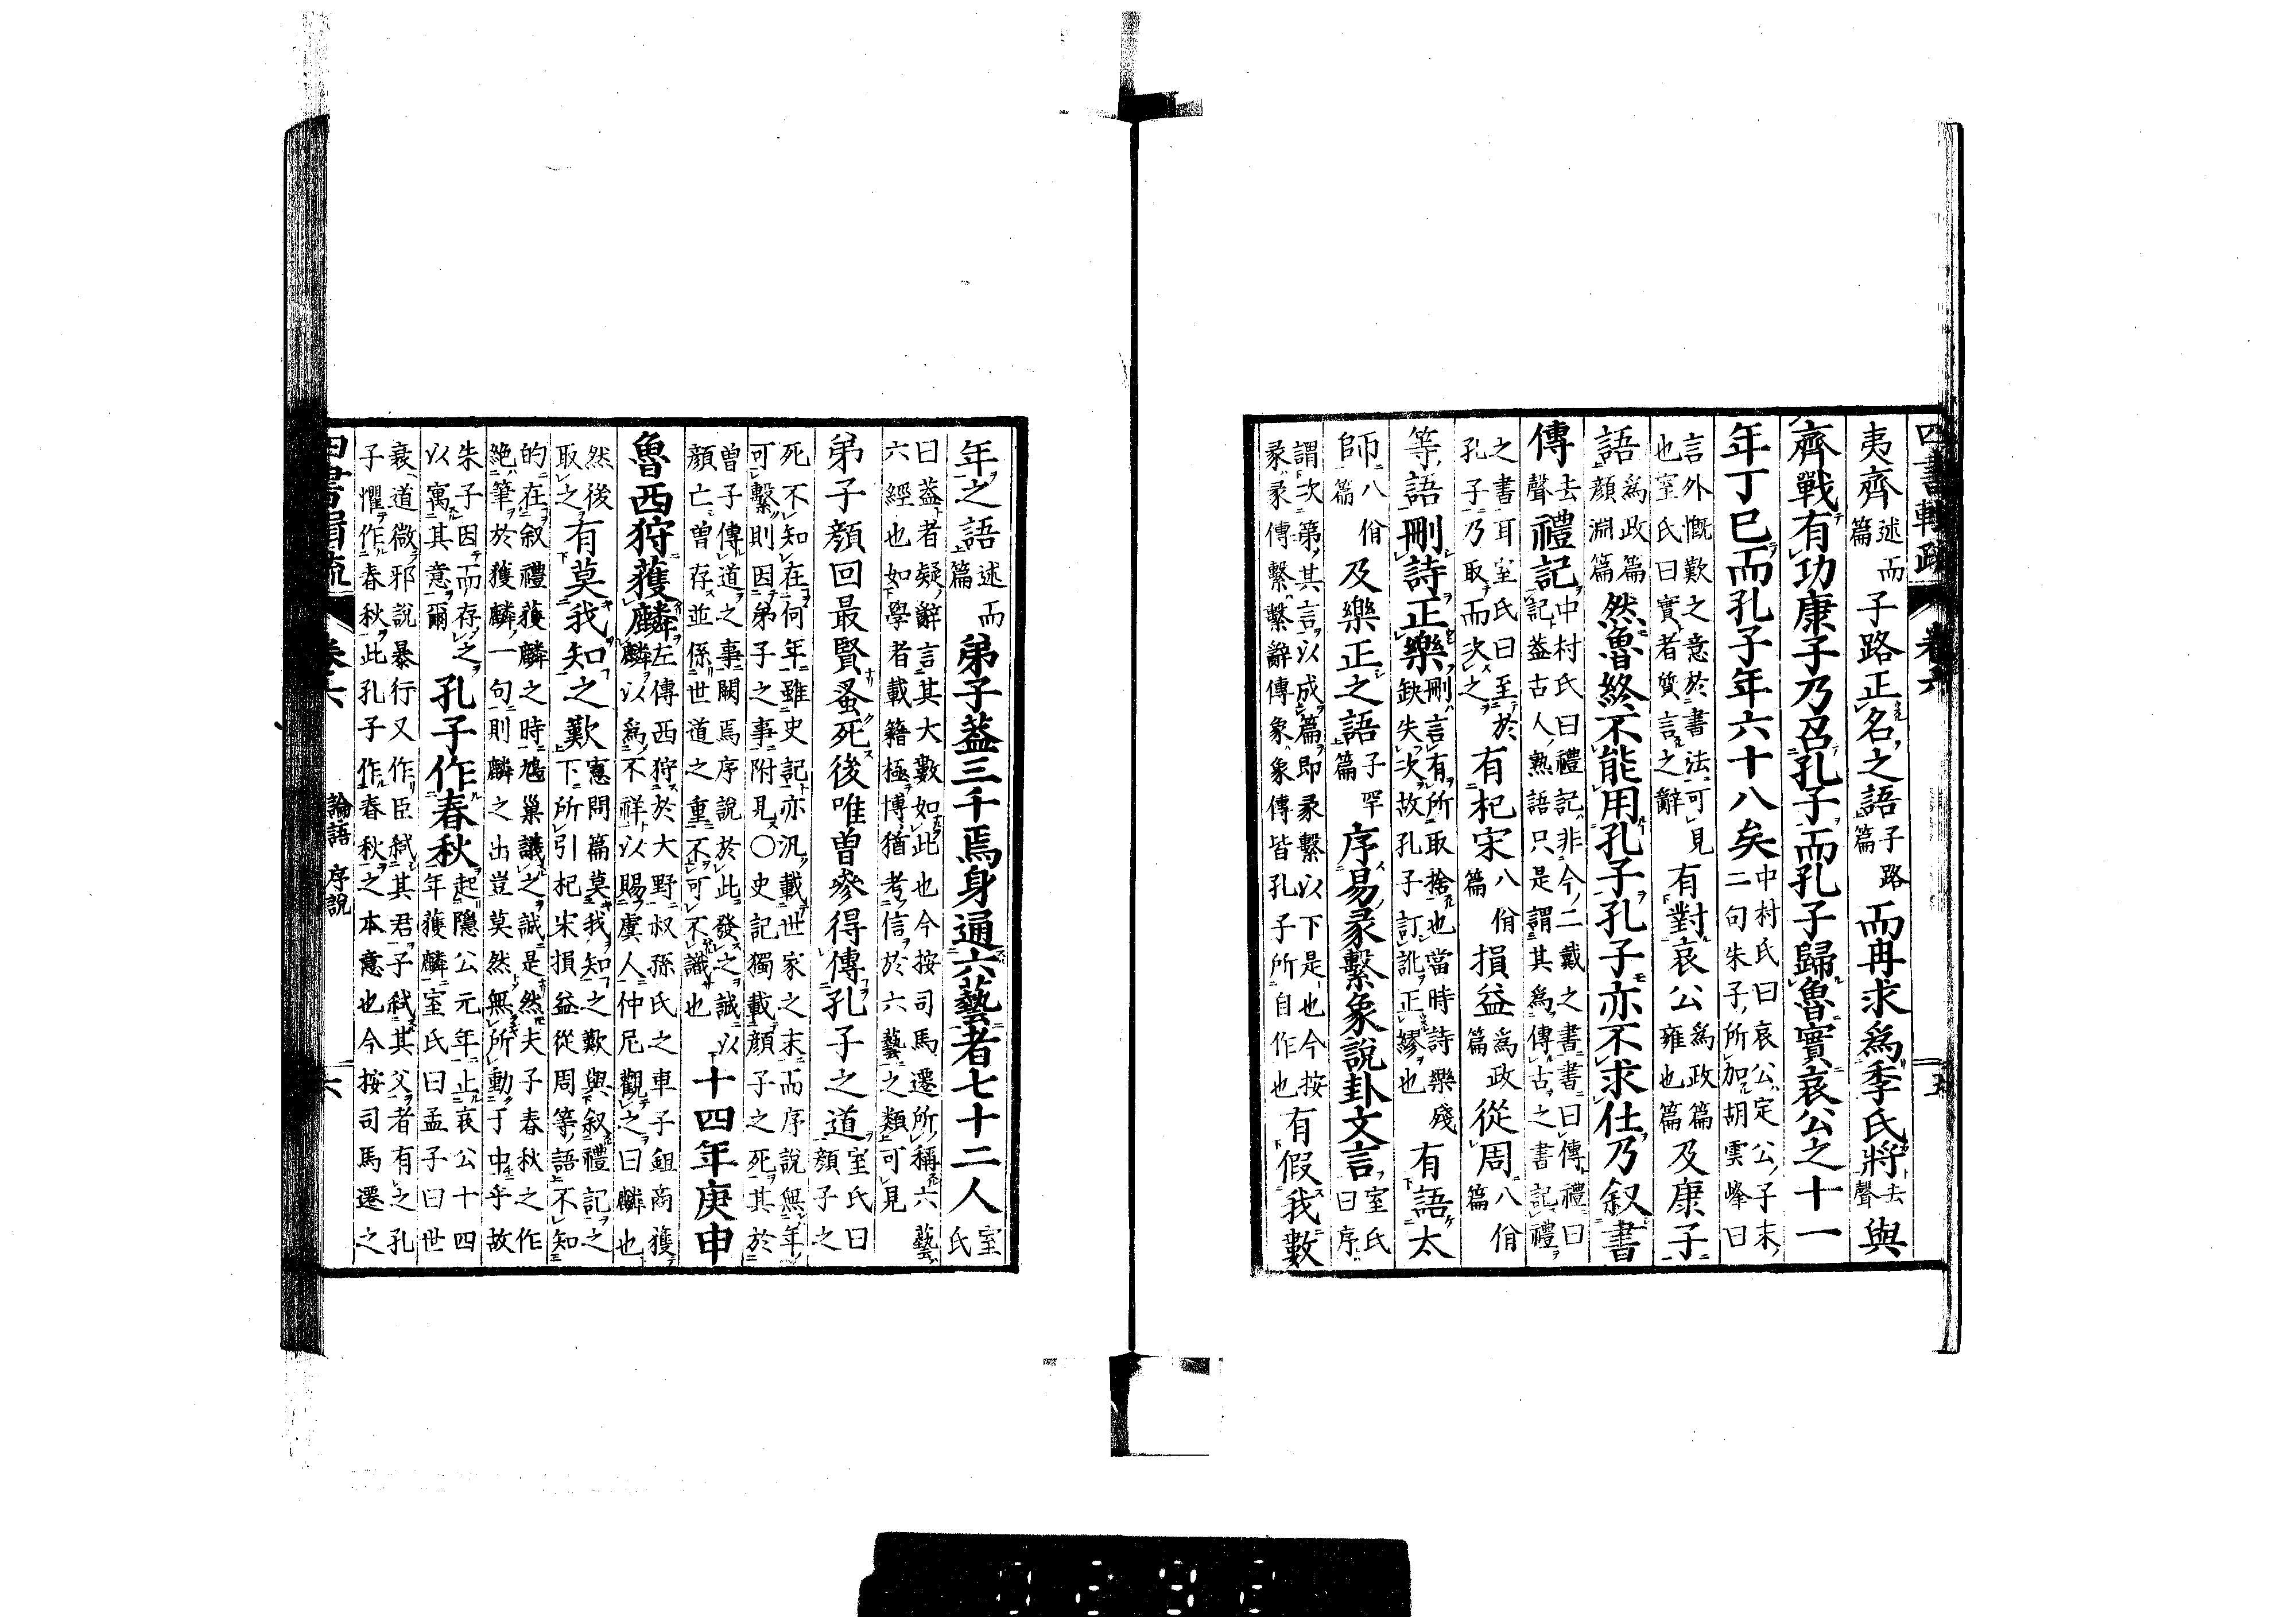 夷齊述而篇子路正名之語子路篇而冉求爲季氏將去聲與
齊戰有功康子乃召孔子而孔子歸魯實哀公之十一
年丁巳而孔子年六十八矣中村氏曰哀公定公子末二句朱子所加胡雲峰曰
言外慨歎之意於書法可見也室氏曰實者質言之辭有對哀公爲政篇雍也篇及康子
語爲政篇顏淵篇然魯終不能用孔子孔子亦不求仕乃叙書
傳去聲禮記中村氏曰禮記非今二戴之書書曰傳禮曰記蓋古人熟語只是謂其爲傳古之書記禮
之書耳室氏曰至於孔子乃取而次之有杞宋八佾篇損益爲政篇從周八佾篇
等語刪詩正樂刪言有所取捨也當時詩樂殘缺失次故孔子訂訛正繆也有語太
師八佾篇及樂正之語子罕篇序易彖繫象說卦文言室氏曰序
謂次第其言以成篇即彖繫以下是也今按彖彖傳繫繫辭傳象象傳皆孔子所自作也有假我數
四書輯疏 卷六 五
年之語述而篇弟子蓋三千焉身通六藝者七十二人室氏
曰蓋者疑辭言其大數如此也今按司馬遷所稱六藝六經也如學者載籍極博猶考信於六藝之類可見
弟子顏回最賢蚤死後唯曾參得傳孔子之道室氏曰顏子之
死不知在何年雖史記亦汎載世家之末而序說無年可繫則因弟子之事附見〇史記獨載顏子之死其於
曾子傳道之事闕焉序說於此發之誠以顏亡曾存並係世道之重不可不識也十四年庚申
魯西狩獲麟左傳西狩於大野叔孫氏之車子鉏商獲麟以爲不祥以賜虞人仲尼觀之曰麟也
然後取之有莫我知之歎憲問篇莫我知之歎與叙禮記之下所引杞宋損益從周等語不知
的在叙禮獲麟之時鳩巢議之誠是然夫子春秋之作絶筆於獲麟一句則麟之出豈莫然無所動于中乎故
朱子因而存之以寓其意爾孔子作春秋起隱公元年止哀公十四年獲麟室氏曰孟子曰世
衰道微邪說暴行又作臣弑其君子弑其父者有之孔子懼作春秋此孔子作春秋之本意也今按司馬遷之
四書輯疏 卷六 論語 序說 六